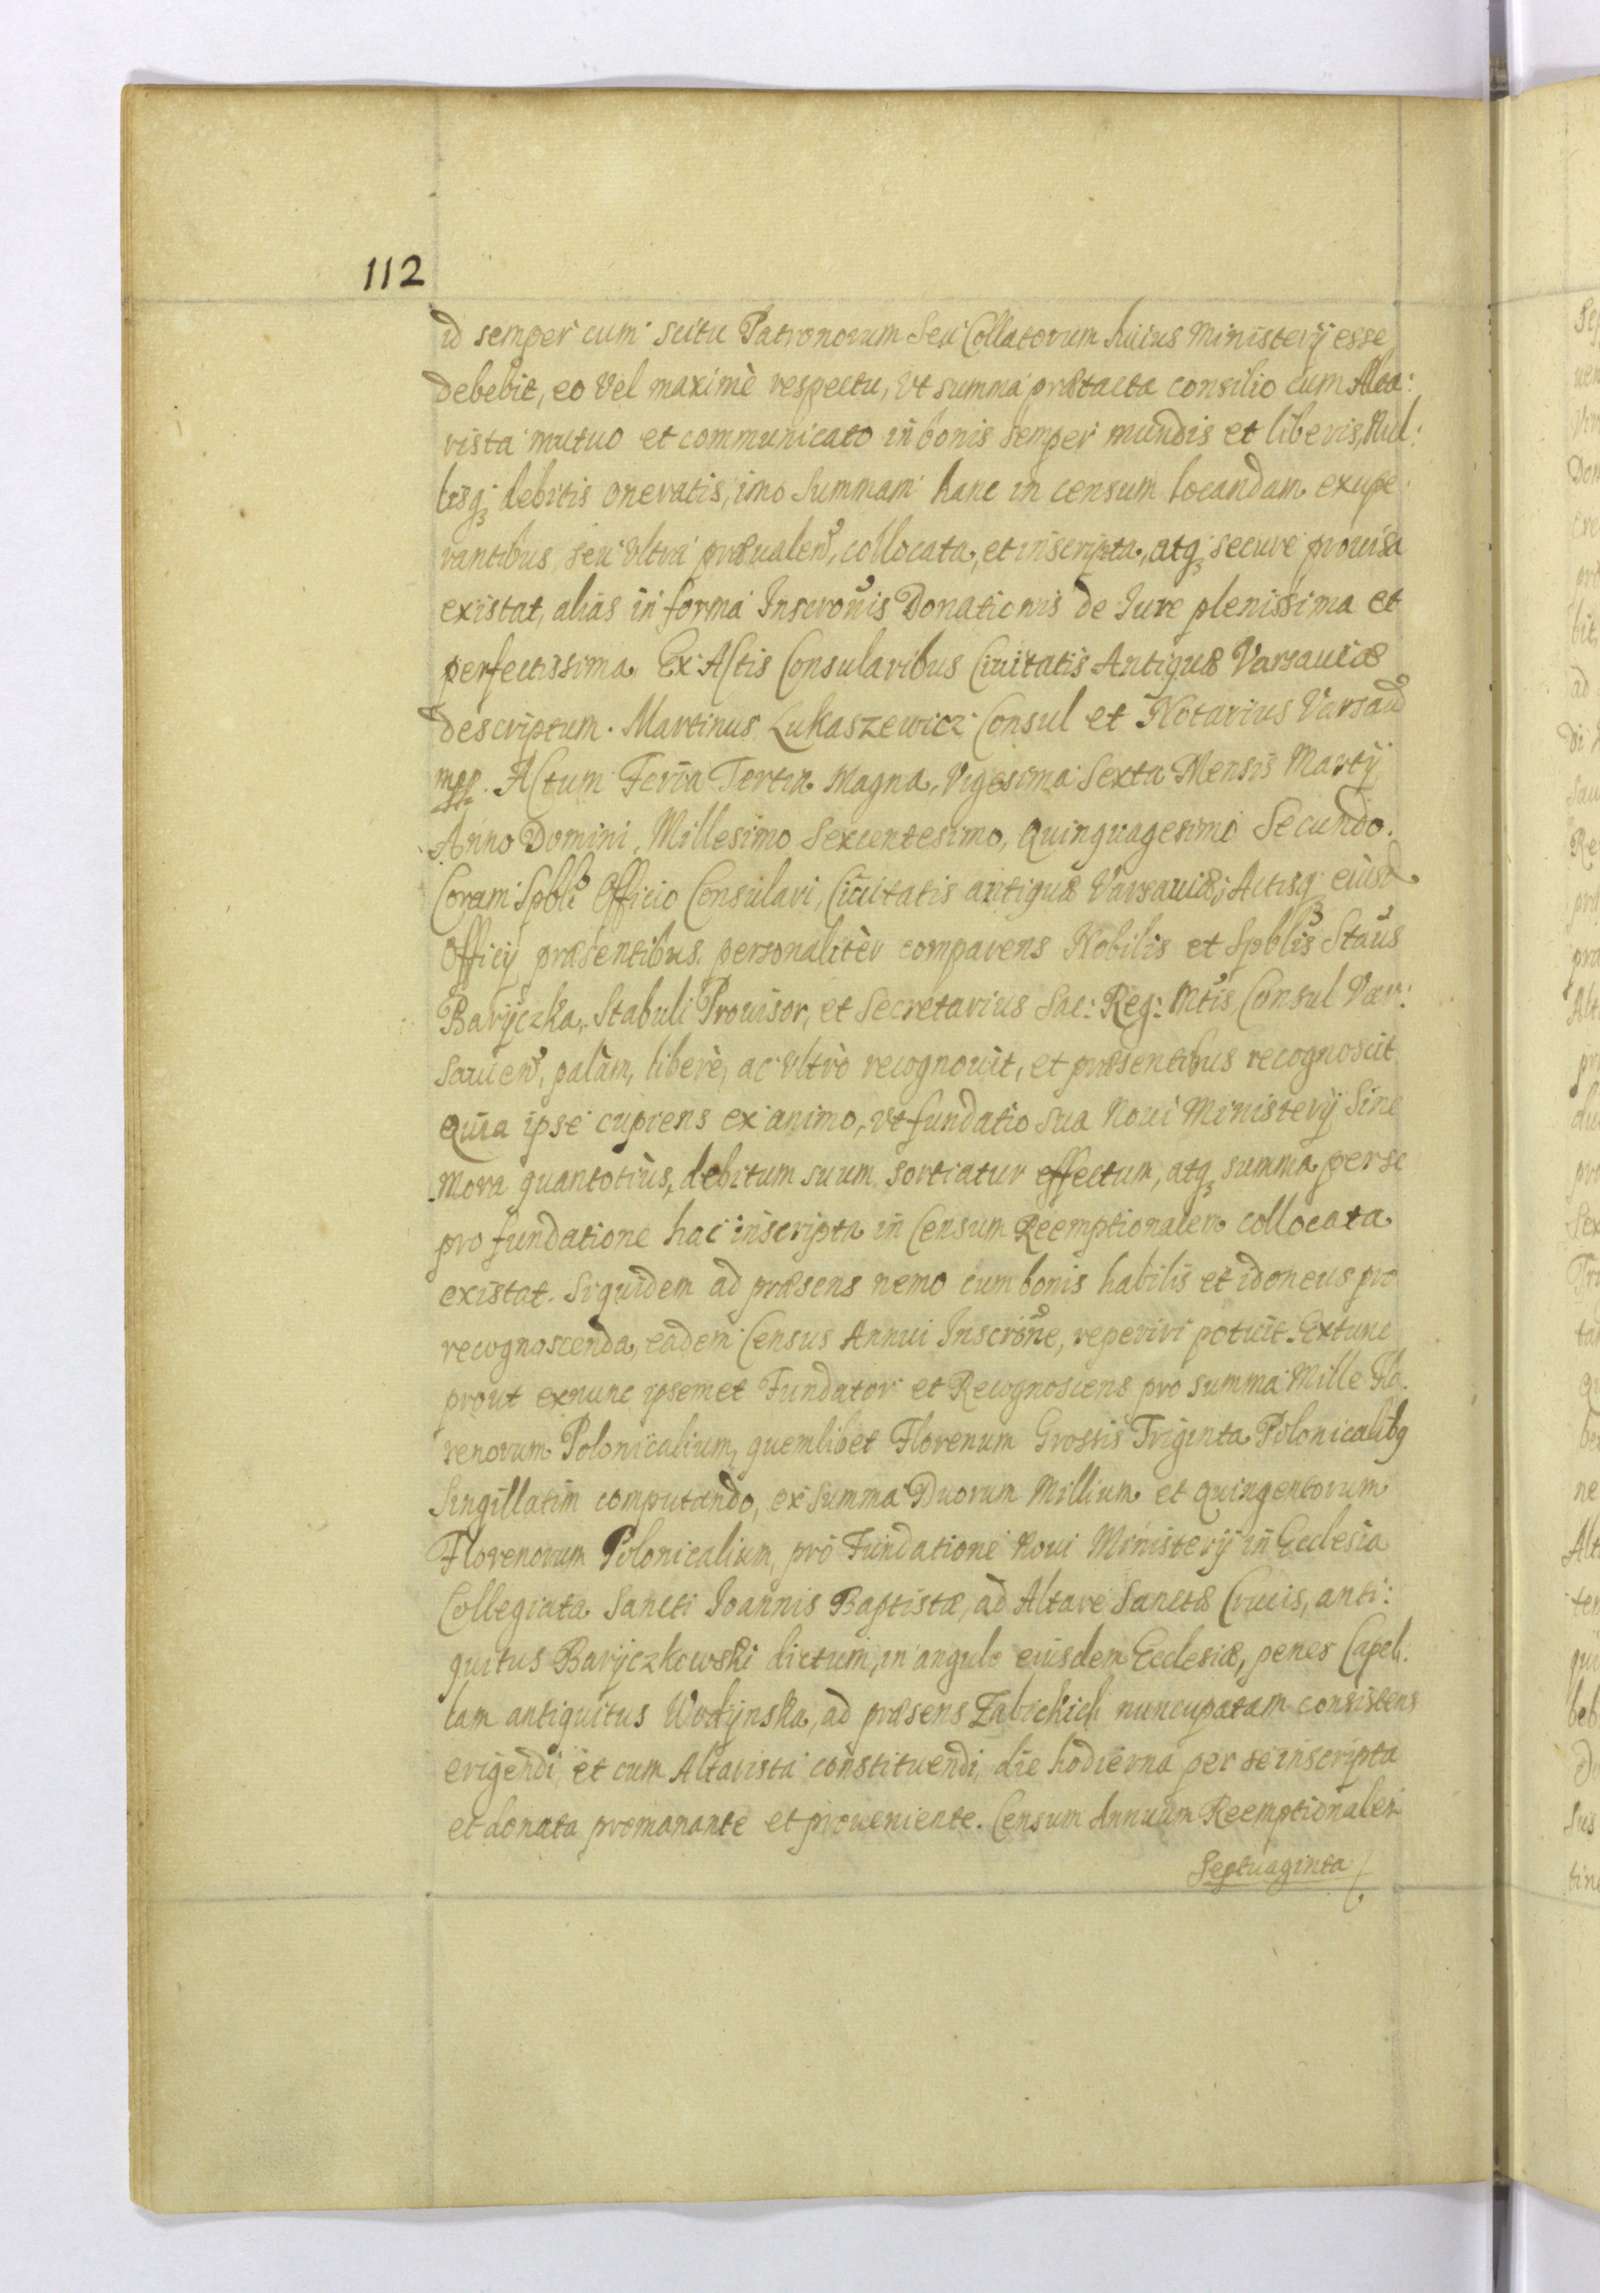 112
id semper cum scitu Patronorum seu Collatorum huius Ministerij esse
debebit, eo vel maximè respectu, vt summa prætacta consilio cum Alta:
rista mutuo et communicato in bonis semper mundis et liberis, Nul:
lisq; debitis oneratis, imo summam hanc in censum locandam exupe:
rantibus, seu vltra præualen, collocata, et inscripta, atq; secure prouisa
existat, alias in forma Inscronis Donationis de Iure plenissima et
perfectissima. Ex Actis Consularibus Ciuitatis Antiquæ Varsauiæ
descriptum. Martinus Lukaszewicz Consul et Notarius Varsau
mpp. Actum Feria Tertia Magna, Vigesima Sexta Mensis Martij
Anno Domini, Millesimo Sexcentesimo, Quinquagesimo Secundo.
Coram Spbli Officio Consulari, Ciuitatis antiquæ Varsauiæ, Actisq; eiusd
Officij præsentibus personalitèr comparens Nobilis et Spblis Staus
Baryczka, Stabuli Prouisor, et Secretarius Sac: Reg: Mtis Consul Var:
sauien, palàm, liberè, ac vltrò recognouit, et præsentibus recognoscit
Quia ipse cupiens ex animo, vt fundatio sua noui Ministerij sine
mora quantotiùs, debitum suum sortiatur effectum, atq; summa per se
pro fundatione hac inscripta in Censum Reemptionalem collocata
existat. Siquidem ad præsens nemo cum bonis habilis et idoneus pro
recognoscenda, eadem Census Annui Inscrone, reperiri potuit. Extunc
prout exnunc ipsemet Fundator et Recognoscens pro summa Mille Flo:
renorum Polonicalium, quemlibet Florenum Grossis Triginta Polonicalibq
Singillatim computando, ex summa Duorum Millium et Quingentorum
Florenorum Polonicalium, pro Fundatione Noui Ministerij in Ecclesia
Collegiata Sancti Ioannis Baptistæ, ad Altare Sanctæ Crucis, anti:
quitus Baryczkowski dictum, in angulo eiusdem Ecclesiæ, penes Capel:
lam antiquitus Wodynska, ad præsens Zabickich nuncupatam consistens
erigendi, et cum Altarista constituendi, die hodierna per se inscripta
et donata promanante et proueniente. Censum Annuum Reemptionalem
Septuaginta